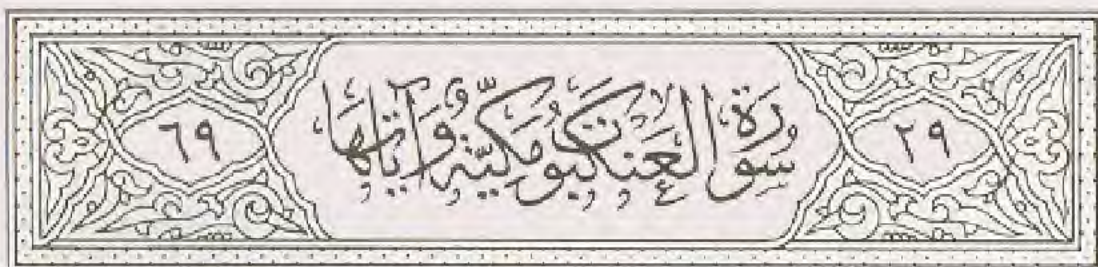 ٢٩ سُورَةُ الْعَنكَبُوتِ مَكِّيَّة وَآيَاتُهَا ٦٩